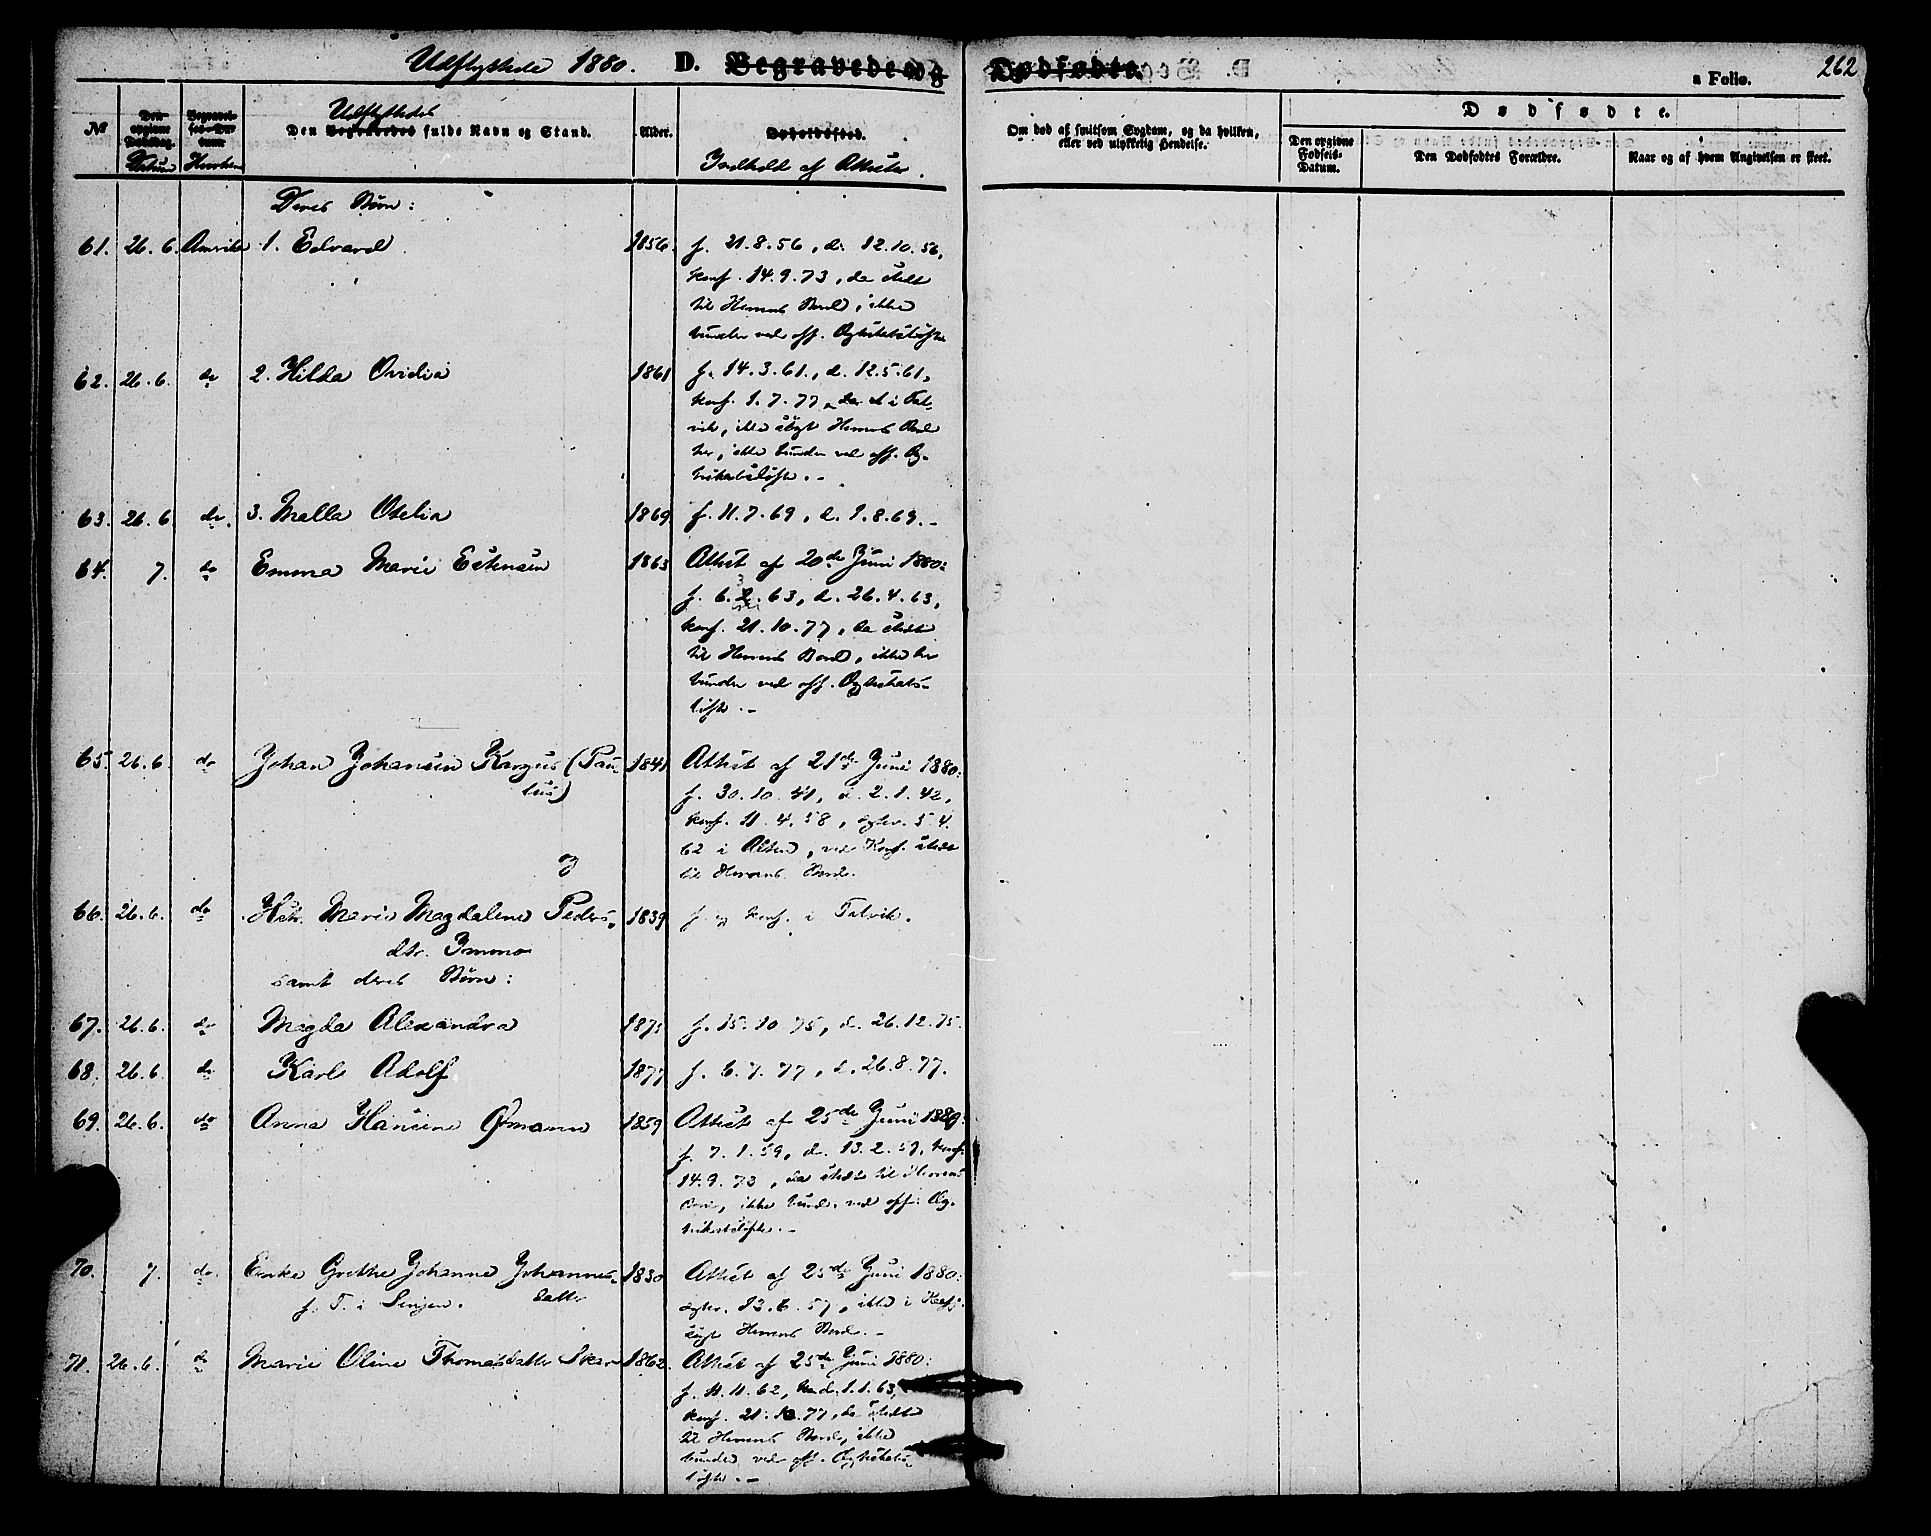 Udflyttede 1880. D. Begravede og Dødfødte. a Folio. 262
No
Den opgivne Dødsdag. Datum
Begravelses-Datum Hvorhen
Udflyttedes
Den Begravedes fulde Navn og Stand.
Alder.
Opholdssted.
Indhold af Attester.
Om død af smitsom Sygdom, og da hvilken, eller ved ulykkelig Hendelse.
Dødfødte.
Den opgivne Fødsels-Datum.
Den Dødfødtes Forældre.
Naar og af hvem Angivelsen er skeet.
Deres Børn:
61. 26.6. Amerika 1. Edvard 1856. f. 21.8.56, d. 12.10.56,
konf. 14.9.73, da stedt
til Herrens Bord, ikke
bunden ved off. Ægteskabsløfte
62. 26.6. do 2. Hilda Ovidia 1861 f. 14.3.61, d. 12.5.61,
konf. 1.7.77, i Tal-
vik, ikke søgt Herrens Bord
her, ikke bunden ved off. Æg-
teskabsløfte.-
63. 26.6 do. 3. Malla Otelia 1869 f. 11.7.69, d. 1.8.69.-
64. 7. do Emma Marie Estensen 1863 Attest af 20de Juni 1880:
3
f. 6.2.63, d. 26.4.63,
konf. 21.10.77, da stedt
til Herrens Bord, ikke her
bunden ved off. Ægteskabs-
løfte.-
65. 26.6. do Johan Johansen Kargus (Pau- 1841 Attest af 21de Juni 1880:
lus) f. 30.10.41, d. 2.1.42,
konf. 11.4.58, ægtev. 5.4.
62 i Alten, ved Konf. stedt
og til Herrens Bord.
66. 26.6. do Hstr. Marie Magdalene Peders- 1839 f. og konf. i Talvik.
dtr. Immo
samt deres Børn:
67. 26.6. do Magda Alexandra 1875 f. 15.10.75, d. 26.12.75.
68. 26.6. do Karl Adolf 1877 f. 6.7.77, d. 26.8.77.
69. 26.6. do Anna Hansine Ømann 1859 Attest af 25de Juni 1880:
f. 7.1.59, d. 13.2.59, konf.
14.9.73, da stedt til Herrens
Bord, ikke bund. ved off. Æg-
teskabsløfte.-
70. 7. do. Enke Grethe Johanne Johannes- 1830 Attest af 25de Juni 1880:
f. T. i Senjen. datter ægtev. 13.6.57, ikke i
søgt Herrens Bord.-
71. 26.6. do Marie Oline Thomasdatter Skar 1862. Attest af 25de Juni 1880:
f. 11.11.62, d. 1.1.63,
konf. 21.10.77, da stedt
til Herrens Bord, ikke
bunden ved off. Ægteskabs-
løfte.-